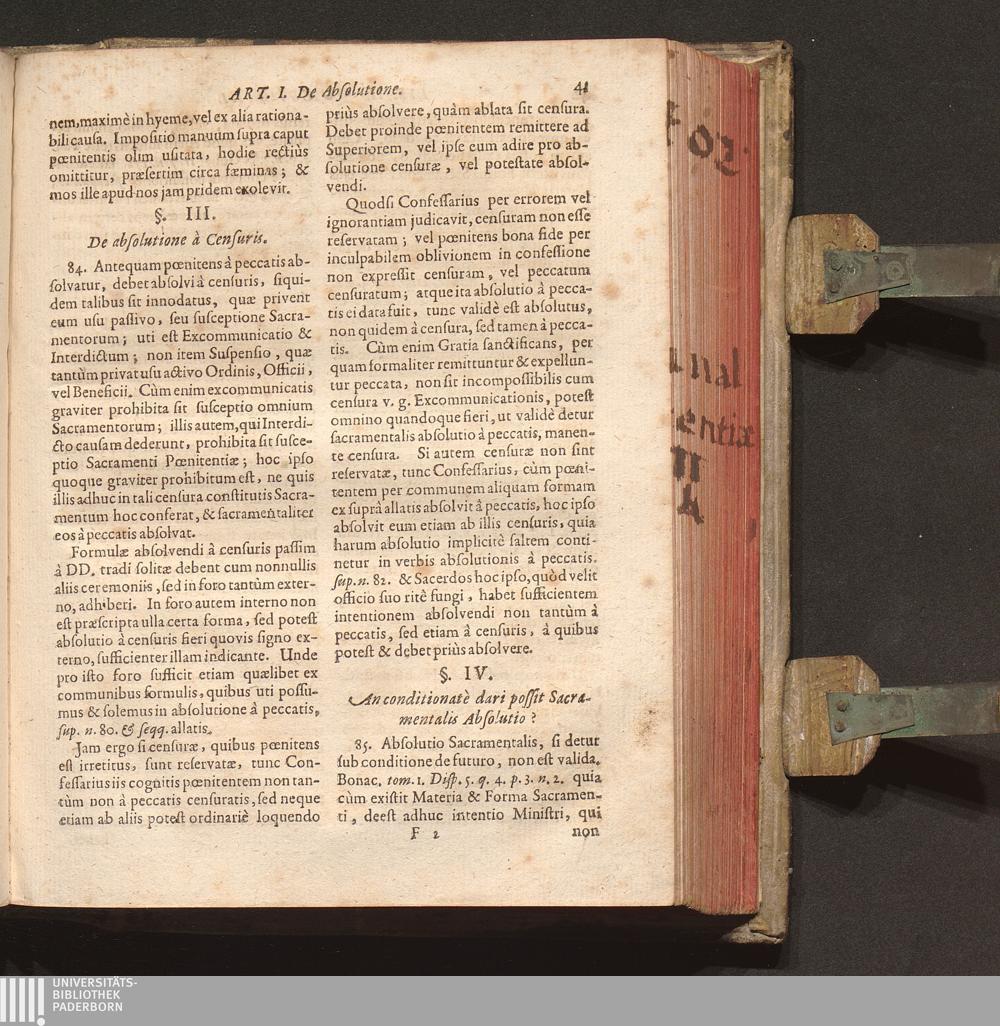 ART. I. De Abſolutione. 41
nem, maximè in hyeme, vel ex alia rationa-
bili cauſa. Impoſitio manuum ſupra caput
pœnitentis olim uſitata, hodie rectiùs
omittitur, præſertim circa fæminas; &
mos ille apud nos jam pridem exolevit.
§. III.
De abſolutione à Cenſuris.
84. Antequam pœnitens à peccatis ab-
ſolvatur, debet abſolvi à cenſuris, ſiqui-
dem talibus ſit innodatus, quæ privent
eum uſu paſſivo, ſeu ſuſceptione Sacra-
mentorum; uti eſt Excommunicatio &
Interdictum; non item Suſpenſio, quæ
tantùm privat uſu activo Ordinis, Officii,
vel Beneficii. Cùm enim excommunicatis
graviter prohibita ſit ſuſceptio omnium
Sacramentorum; illis autem, qui Interdi-
cto cauſam dederunt, prohibita ſit ſuſce-
ptio Sacramenti Pœnitentiæ; hoc ipſo
quoque graviter prohibitum eſt, ne quis
illis adhuc in tali cenſura conſtitutis Sacra-
mentum hoc conferat, & ſacramentaliter
eos à peccatis abſolvat.
Formulæ abſolvendi à cenſuris paſſim
à DD. tradi ſolitæ debent cum nonnullis
aliis ceremoniis, ſed in foro tantùm exter-
no, adhiberi. In foro autem interno non
eſt præſcripta ulla certa forma, ſed poteſt
abſolutio à cenſuris fieri quovis ſigno ex-
terno, ſufficienter illam indicante. Unde
pro iſto foro ſufficit etiam quælibet ex
communibus formulis, quibus uti poſſu-
mus & ſolemus in abſolutione à peccatis,
ſup. n. 80. & ſeqq. allatis.
Jam ergo ſi cenſuræ, quibus pœnitens
eſt irretitus, ſunt reſervatæ, tunc Con-
feſſarius iis cognitis pœnitentem non tan-
tùm non à peccatis cenſuratis, ſed neque
etiam ab aliis poteſt ordinariè loquendo
priùs abſolvere, quàm ablata ſit cenſura.
Debet proinde pœnitentem remittere ad
Superiorem, vel ipſe eum adire pro ab-
ſolutione cenſuræ, vel poteſtate abſol-
vendi.
Quodſi Confeſſarius per errorem vel
ignorantiam judicavit, cenſuram non eſſe
reſervatam; vel pœnitens bona fide per
inculpabilem oblivionem in confeſſione
non expreſſit cenſuram, vel peccatum
cenſuratum; atque ita abſolutio à pecca-
tis ei data fuit, tunc validè eſt abſolutus,
non quidem à cenſura, ſed tamen à pecca-
tis. Cùm enim Gratia ſanctificans, per
quam formaliter remittuntur & expellun-
tur peccata, non ſit incompoſſibilis cum
cenſura v. g. Excommunicationis, poteſt
omnino quandoque fieri, ut validè detur
ſacramentalis abſolutio à peccatis, manen-
te cenſura. Si autem cenſuræ non ſint
reſervatæ, tunc Confeſſarius, cùm pœni-
tentem per communem aliquam formam
ex ſuprà allatis abſolvit à peccatis, hoc ipſo
abſolvit eum etiam ab illis cenſuris, quia
harum abſolutio implicitè ſaltem conti-
netur in verbis abſolutionis à peccatis.
ſup. n. 82. & Sacerdos hoc ipſo, quòd velit
officio ſuo ritè fungi, habet ſufficientem
intentionem abſolvendi non tantùm à
peccatis, ſed etiam à cenſuris, à quibus
poteſt & debet priùs abſolvere.
§. IV.
An conditionatè dari poſſit Sacra-
mentalis Abſolutio?
85. Abſolutio Sacramentalis, ſi detur
ſub conditione de futuro, non eſt valida.
Bonac. tom. 1. Diſp. 5. q. 4. p. 3. n. 2. quia
cùm exiſtit Materia & Forma Sacramen-
ti, deeſt adhuc intentio Miniſtri, qui
F 2 non
entiæ
II
A
UNIVERSITÄTS-
BIBLIOTHEK
PADERBORN